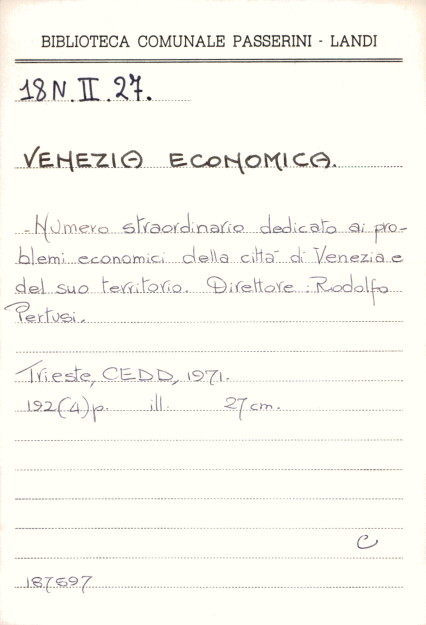 BIBLIOTECA COMUNALE PASSERINI - LANDI
18N.II.27.
VENEZIA ECONOMICA.
- Numero straordinario dedicato ai pro-
blemi economici della città di Venezia e
del suo territorio. Direttore: Rodolfo
Pertusi.
Trieste, CEDD, 1971.
192(4)p. ill. 27cm.
C
187697